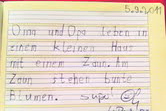 5.9.2011
Oma und Opa leben in
einem kleinen Haus
mit einem Zaun. Am
Zaun stehen bunte
Blumen. super